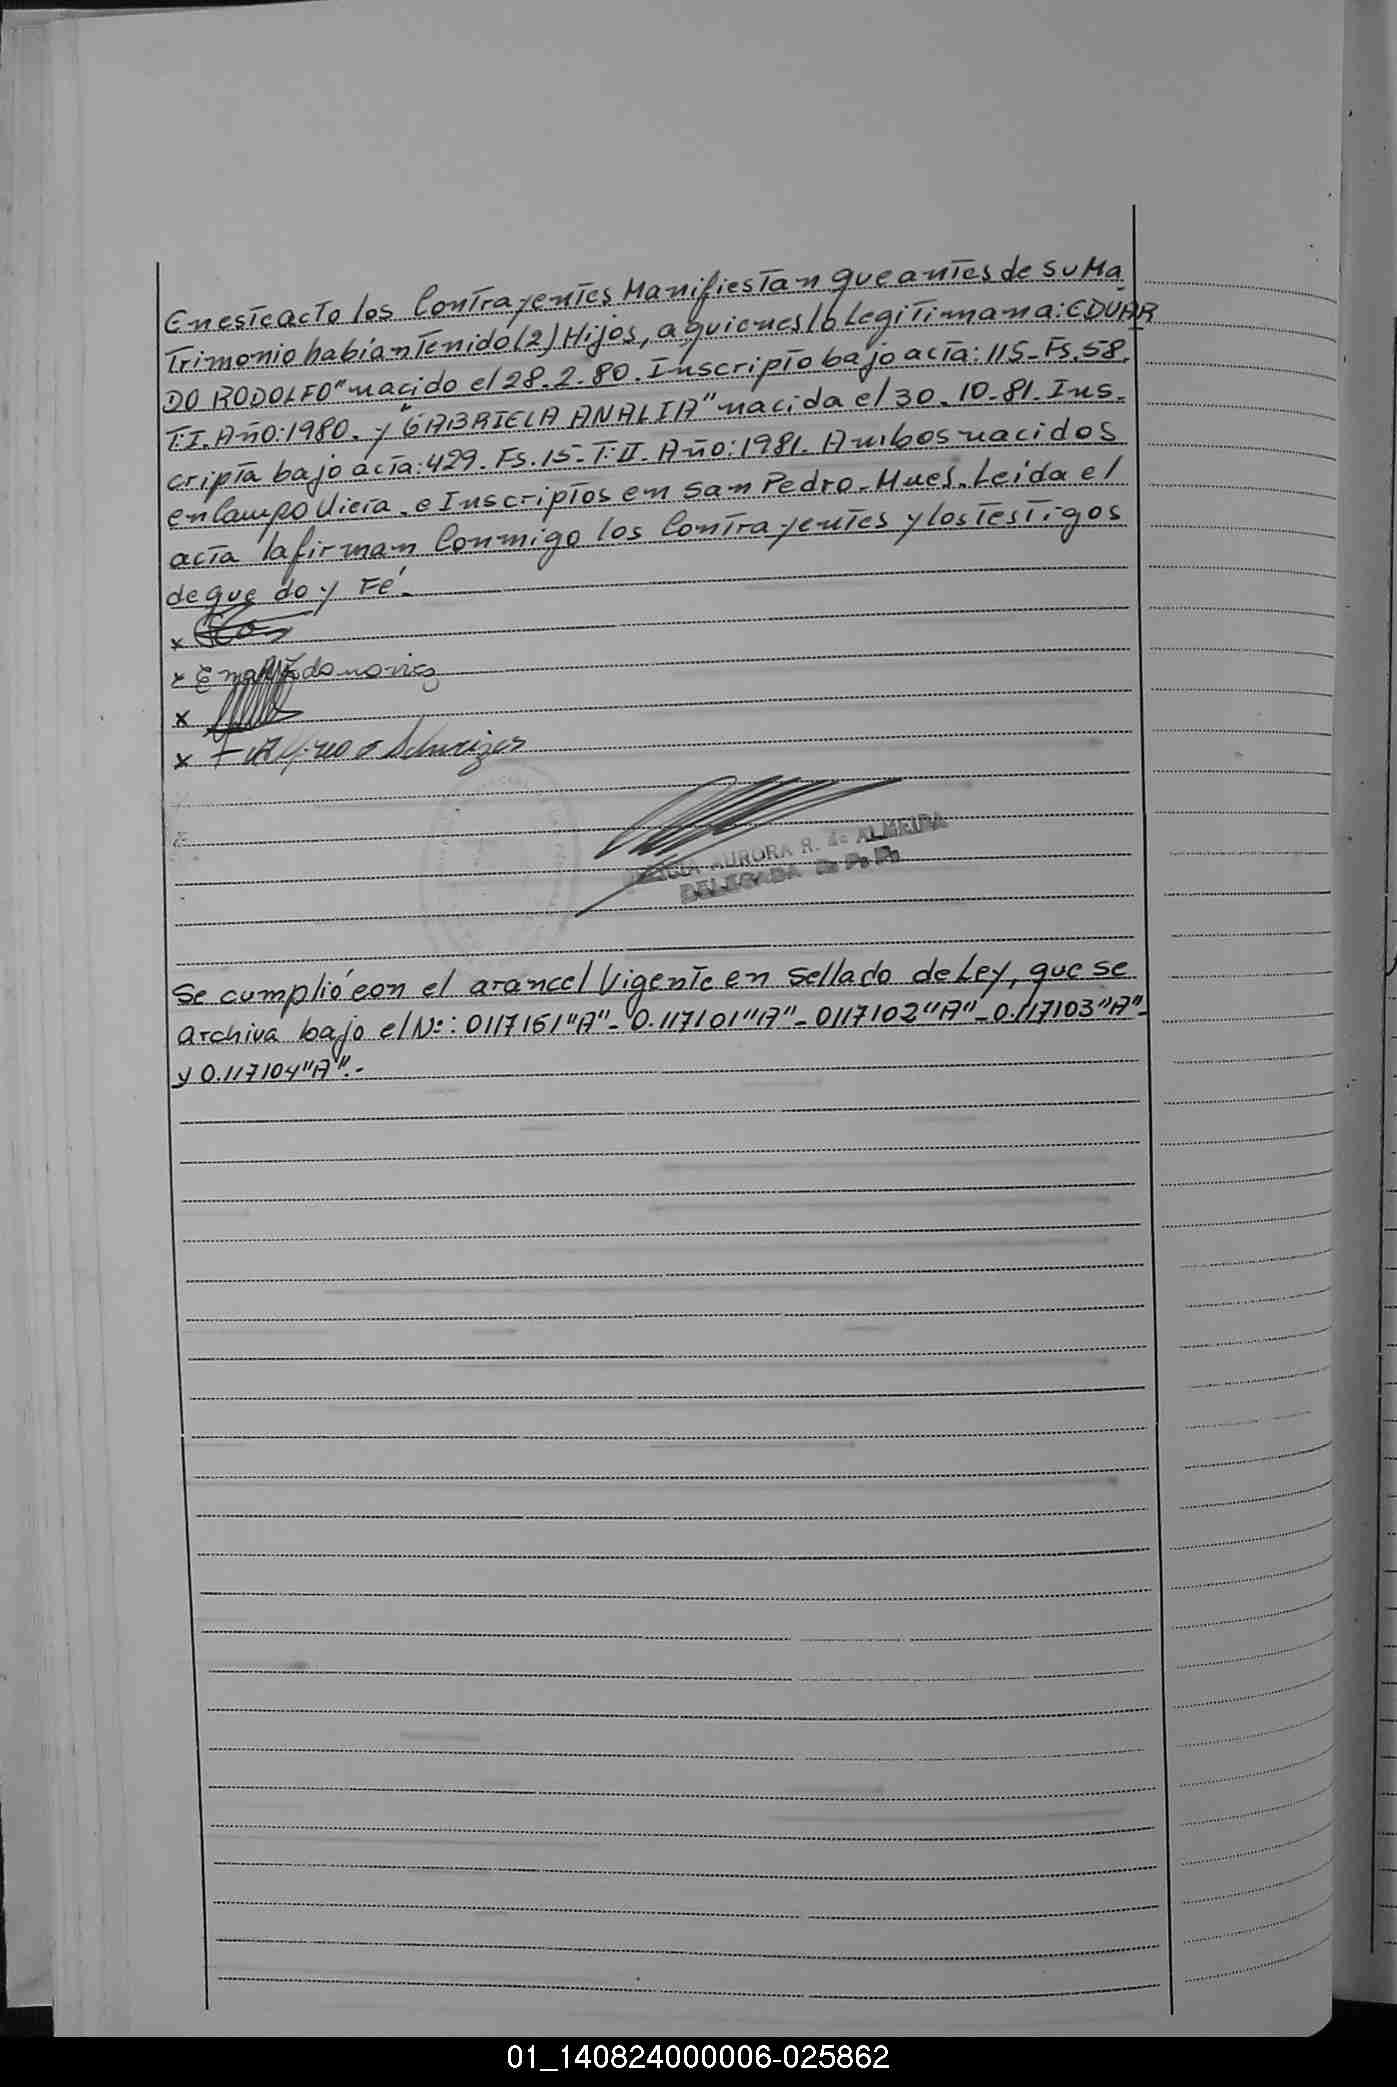 En este acto los Contrayentes Manifiestan que antes de su Ma
Trimonio habían Tenido (2) Hijos, a quienes lo Legitiman a: EDUAR
DO RODOLFO" nacido el 28.2.80. Inscripto bajo acta: 115-Fs.58.
T:I. Año:1980. y "GABRIELA ANALIA" nacida el 30.10-81. Ins.
cripta bajo acta: 429. Fs.15-T:II. Año:1981. Ambos nacidos
en Campo Viera. e Inscriptos en San Pedro-Mnes. Leida el
acta la firman Conmigo los Contrayentes y los Testigos
de que doy Fé.-
x
x
x
x
AURORA R. de ALMEIDA
DELEGADA
Se cumplió con el arancel Vigente en sellado de Ley, que se
archiva bajo el Nº: 0117161"A"- 0.117101"A"- 0117102"A"-0.117103"A"-
y 0.117104"A".-
01_140824000006-025862